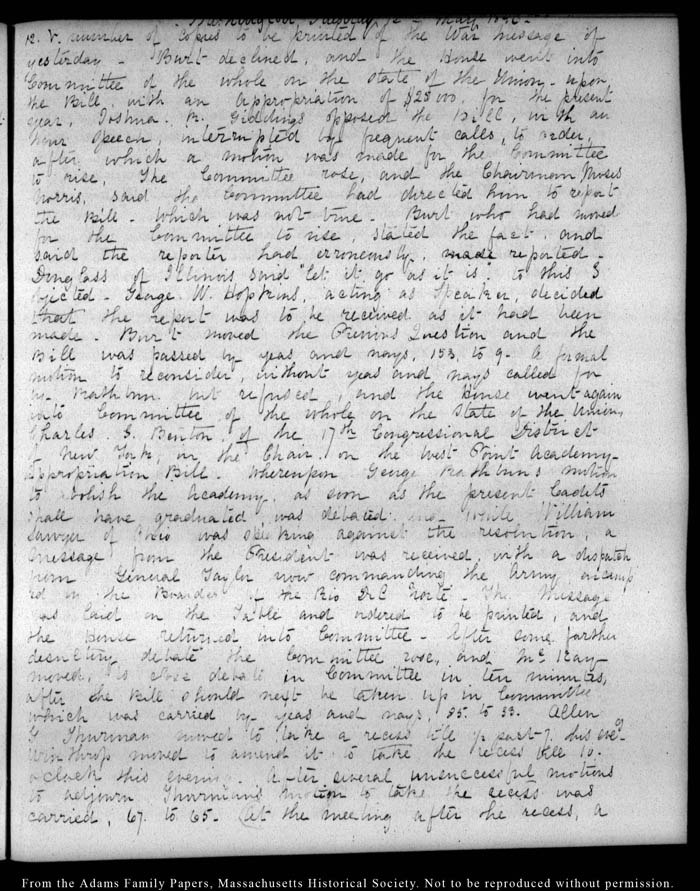 Washington, Tuesday 12 May 1846.
12. V. number of copies to be printed of the War message of
yesterday - Burt declined, and the House went into
Committee of the whole on the state of the Union - upon
the Bill, with an appropriation of $25000, for the present
year, Joshua R. Giddings opposed the Bill, with an
hour speech, interrupted by frequent calls, to order,
after which a motion was made for the Committee
to rise, The Committee rose, and the Chairman Moses
Norris, said the Committee had directed him to report
the Bill - which was not true - Burt who had moved
for the Committee to rise, stated the fact, and
said the reporter had erroneously, made reported -
Douglass of Illinois said "let it go as it is" to this I
objected - George W. Hopkins, acting as Speaker, decided
that the report was to be received as it had been
made - Burt moved the Previous Question and the
Bill was passed by yeas and nays, 153, to 9 - A formal
motion to reconsider, without yeas and nays called for
by Rathbun but refused, and the House went again
into Committee of the whole on the State of the Union,
Charles S. Benton, of the 17th Congressional District
of New York, in the Chair, on the West Point Academy
Appropriation Bill - Whereupon George Rathbun's motion
to abolish the Academy, as soon as the present Cadets
shall have graduated, was debated. While William
Sawyer of Ohio was speaking against the resolution, a
message from the President was received, with a dispatch
from General Taylor now commanding the Army, encamp
ed on the Border of the Rio Del Norte - The Message
was laid on the Table and ordered to be printed, and
the House returned into Committee - After some further
desultory debate the Committee rose, and McKay
moved, to close debate in Committee in ten minutes,
after the Bill should next be taken up in Committee
which was carried by yeas and nays, 85. to 33. Allen
G. Thurman moved to take a recess till 1/2 past 7. this eveg
Winthrop moved to amend it to take the recess till 10.
o'clock this evening. After several unsuccessful motions
to adjourn Thurman's motion to take the recess was
carried, 67. to 65. At the meeting after the recess, a
From the Adams Family Papers, Massachusetts Historical Society. Not to be reproduced without permission.